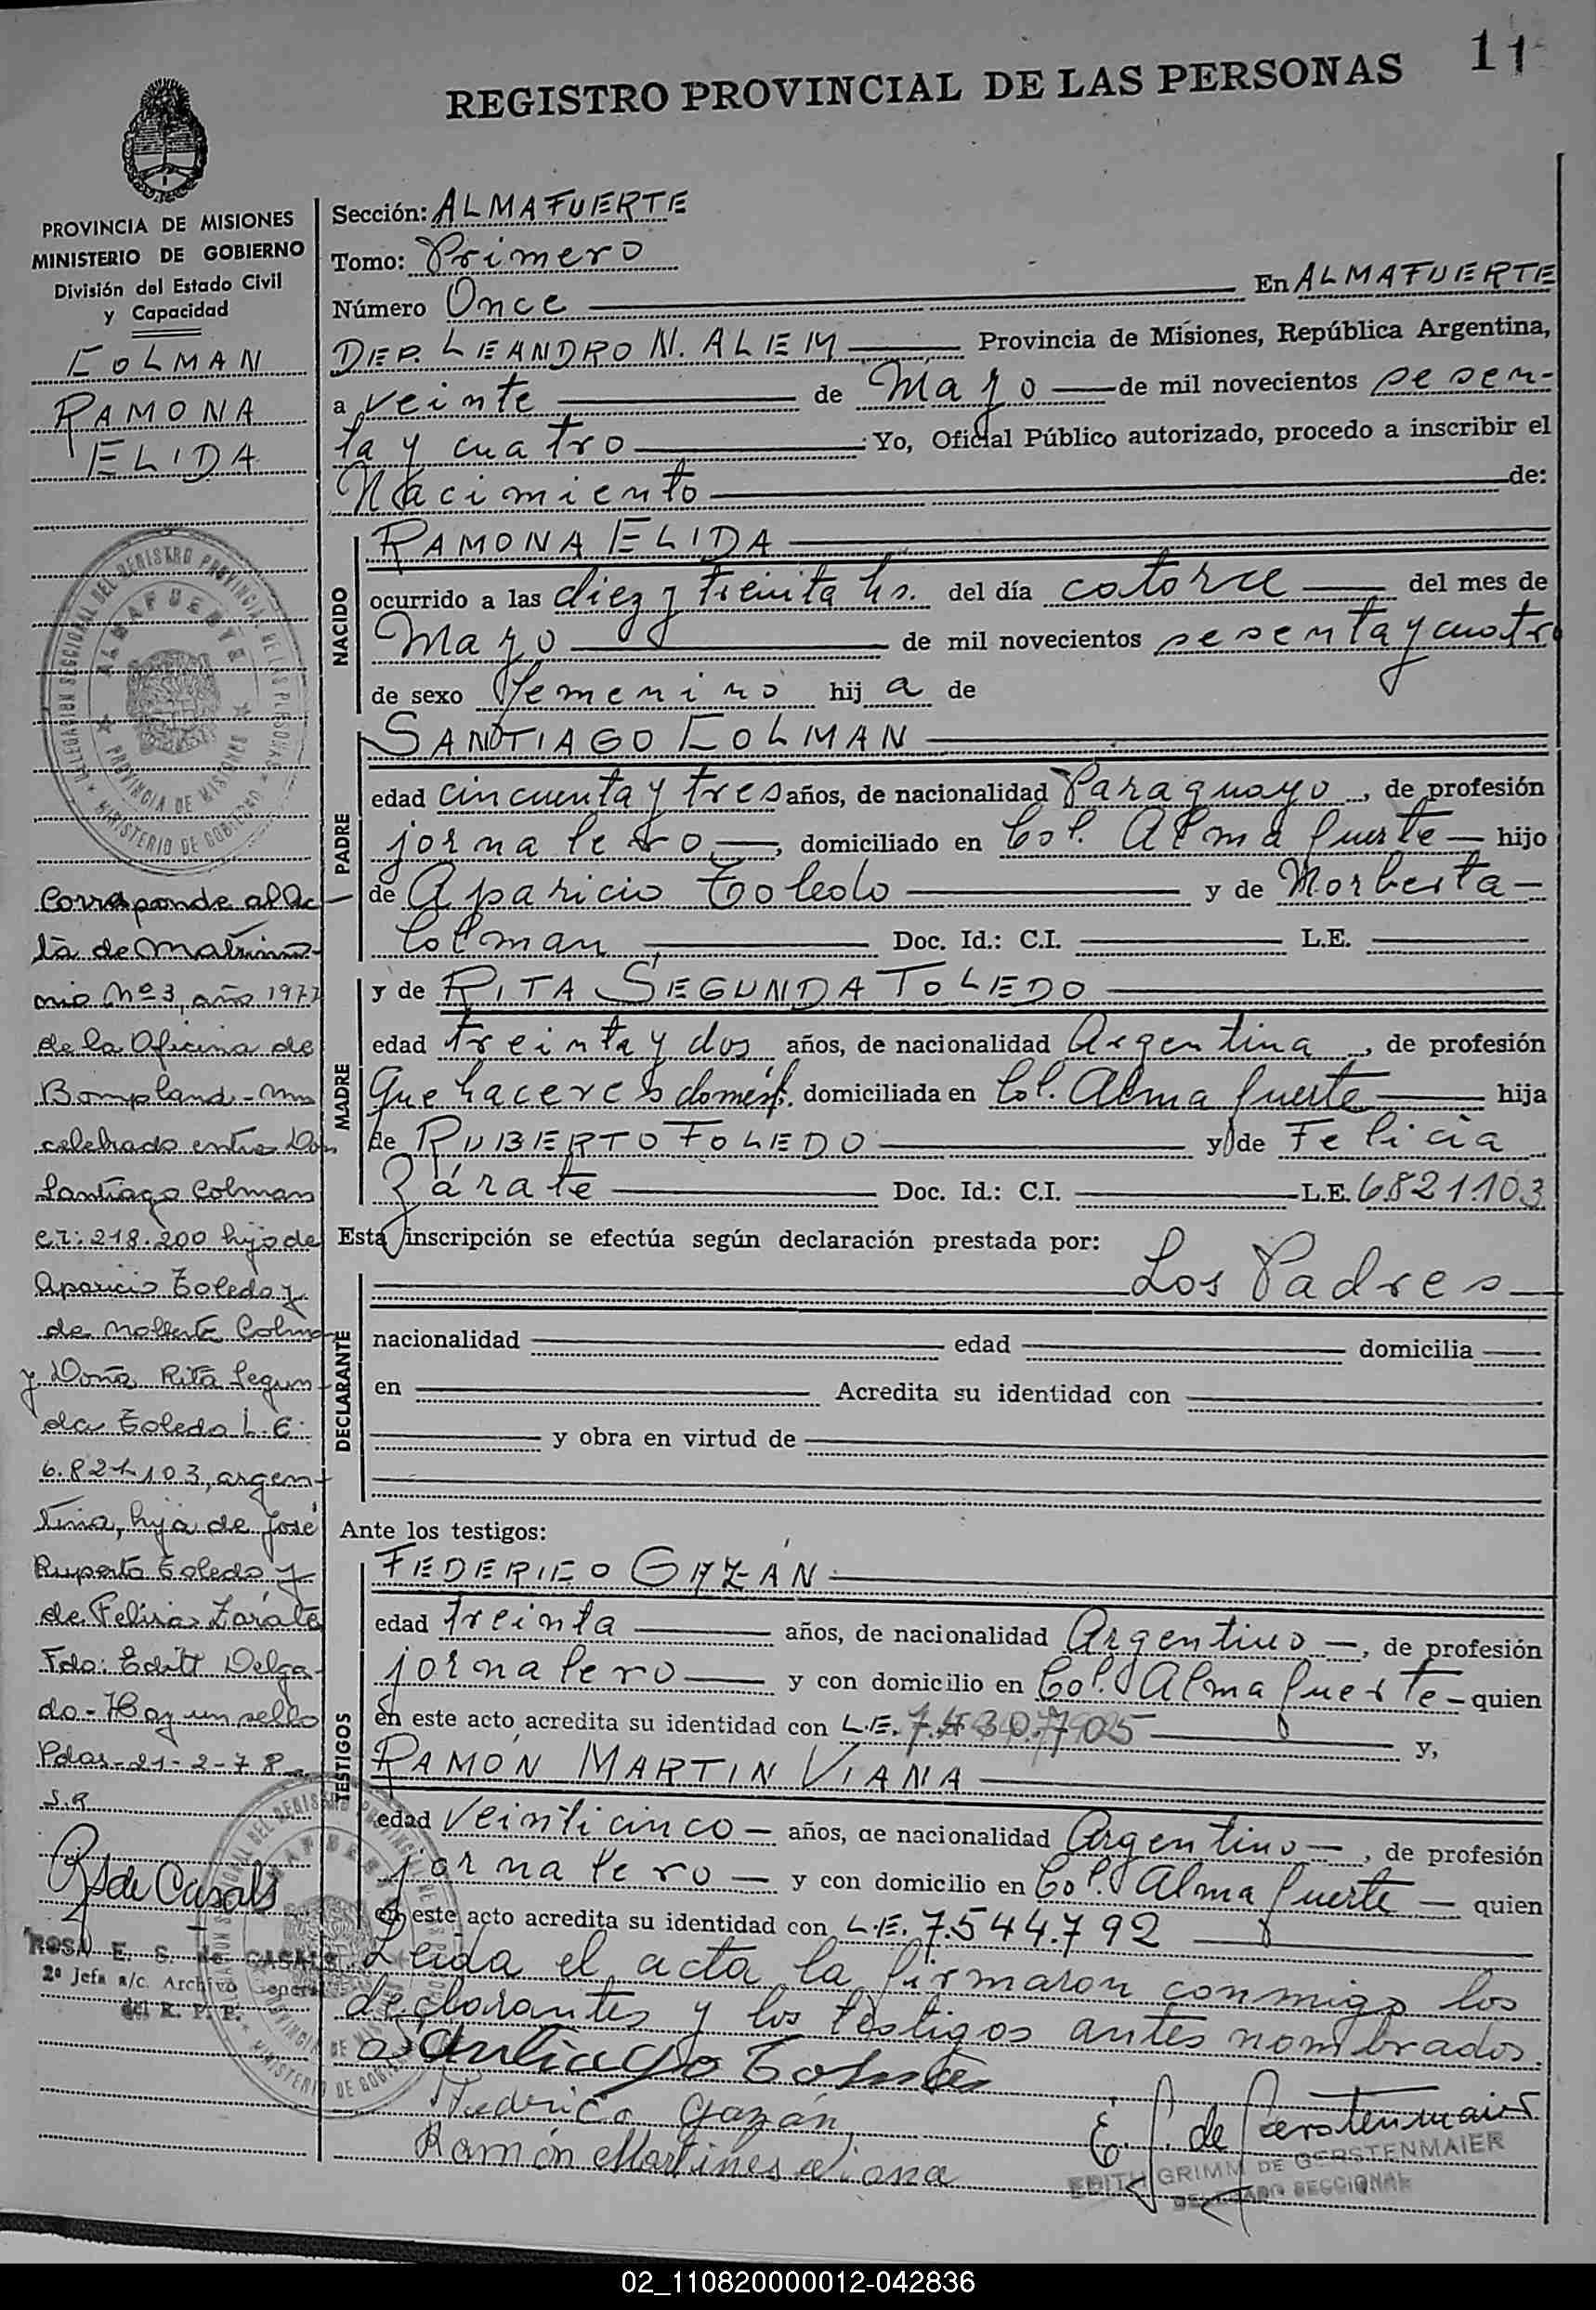 11
REGISTRO PROVINCIAL DE LAS PERSONAS
PROVINCIA DE MISIONES
MINISTERIO DE GOBIERNO
División del Estado Civil
y Capacidad
COLMAN
RAMONA
ELIDA
DELEGACION SECCIONAL DEL REGISTRO PROVINCIAL DE LAS PERSONAS
ALMAFUERTE
PROVINCIA DE MISIONES
MINISTERIO DE GOBIERNO
Corresponde al Ac
ta de Matrimo-
nio Nº 3, año 1977
de la Oficina de
Bompland - Mns
celebrado entre Don
Santiago Colman
CI: 218.200 hijo de
Aparicio Toledo y
de Colma
y Doña Rita Segun-
da Toledo L.E:
6.821.103, argen-
tina, hija de José
Ruperto Toledo y
de Felisa Zarate
Fdo: Edítt Delga-
do - Hay un sello
Pdas-21-2-78
S.R
R S de Casals
ROSA E. S. de CASALS
2ª Jefa a/c. Archivo General
del R. P. P.
Sección: ALMAFUERTE
Tomo: Primero
Número Once En ALMAFUERTE
DEP. LEANDRO N. ALEM Provincia de Misiones, República Argentina,
a veinte de Mayo de mil novecientos sesen-
ta y cuatro Yo, Oficial Público autorizado, procedo a inscribir el
Nacimiento de:
NACIDO
RAMONA ELIDA
ocurrido a las diez y treinta hs. del día catorce del mes de
Mayo de mil novecientos sesenta y cuatro
de sexo femenino hij a de
PADRE
SANTIAGO COLMAN
edad cincuenta y tres años, de nacionalidad Paraguayo, de profesión
jornalero, domiciliado en Col. Almafuerte hijo
de Aparicio Toledo y de Norberta
Colman Doc. Id.: C.I. L.E.
MADRE
y de RITA SEGUNDA TOLEDO
edad treinta y dos años, de nacionalidad Argentina, de profesión
Quehaceres domést. domiciliada en Col. Almafuerte hija
de RUBERTO TOLEDO y de Felicia
Zárate Doc. Id.: C.I. L.E. 6.821.103
Esta inscripción se efectúa según declaración prestada por:
Los Padres
DECLARANTE
nacionalidad edad domicilia
en Acredita su identidad con
y obra en virtud de
Ante los testigos:
TESTIGOS
FEDERICO GAZÁN
edad treinta años, de nacionalidad Argentino, de profesión
jornalero y con domicilio en Col. Almafuerte quien
en este acto acredita su identidad con L.E. y,
RAMÓN MARTIN VIANA
edad veinticinco años, de nacionalidad Argentino, de profesión
jornalero y con domicilio en Col. Almafuerte quien
en este acto acredita su identidad con L.E. 7.544.792
Leida el acta la firmaron conmigo los
declarantes y los testigos antes nombrados.
Santiago
Federico Gazán
Ramón Viana
E. G. de Gerstenmaier
EDITH GRIMM DE GERSTENMAIER
DELEGADO SECCIONAL
02_110820000012-042836